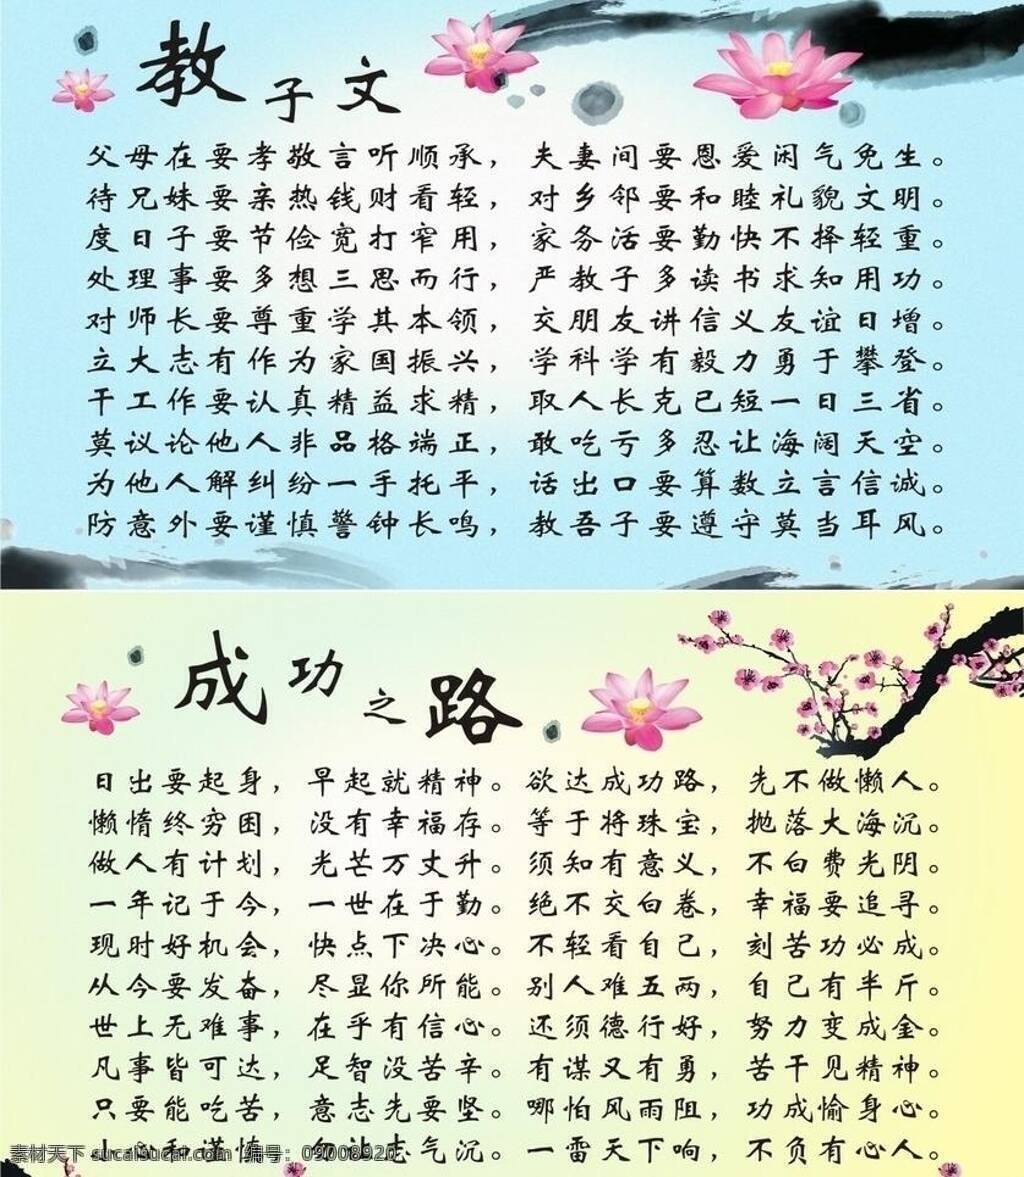 教子文
父母在要孝敬言听顺承，夫妻间要恩爱闲气免生。
待兄妹要亲热钱财看轻，对乡邻要和睦礼貌文明。
度日子要节俭宽打窄用，家务活要勤快不择轻重。
处理事要多想三思而行，严教子多读书求知用功。
对师长要尊重学其本领，交朋友讲信义友谊日增。
立大志有作为家国振兴，学科学有毅力勇于攀登。
干工作要认真精益求精，取人长克己短一日三省。
莫议论他人非品格端正，敢吃亏多忍让海阔天空。
为他人解纠纷一手托平，话出口要算数立言信诚。
防意外要谨慎警钟长鸣，教吾子要遵守莫当耳风。
成功之路
日出要起身，早起就精神。欲达成功路，先不做懒人。
懒惰终穷困，没有幸福存。等于将珠宝，抛落大海沉。
做人有计划，光芒万丈升。须知有意义，不白费光阴。
一年记于今，一世在于勤。绝不交白卷，幸福要追寻。
现时好机会，快点下决心。不轻看自己，刻苦功必成。
从今要发奋，尽显你所能。别人难五两，自己有半斤。
世上无难事，在乎有信心。还须德行好，努力变成金。
凡事皆可达，足智没苦辛。有谋又有勇，苦干见精神。
只要能吃苦，意志先要坚。哪怕风雨阻，功成愉身心。
小心和谨慎，勿让志气沉。一雷天下响，不负有心人。
素材天下 sucaisucai.com 编号：09008920